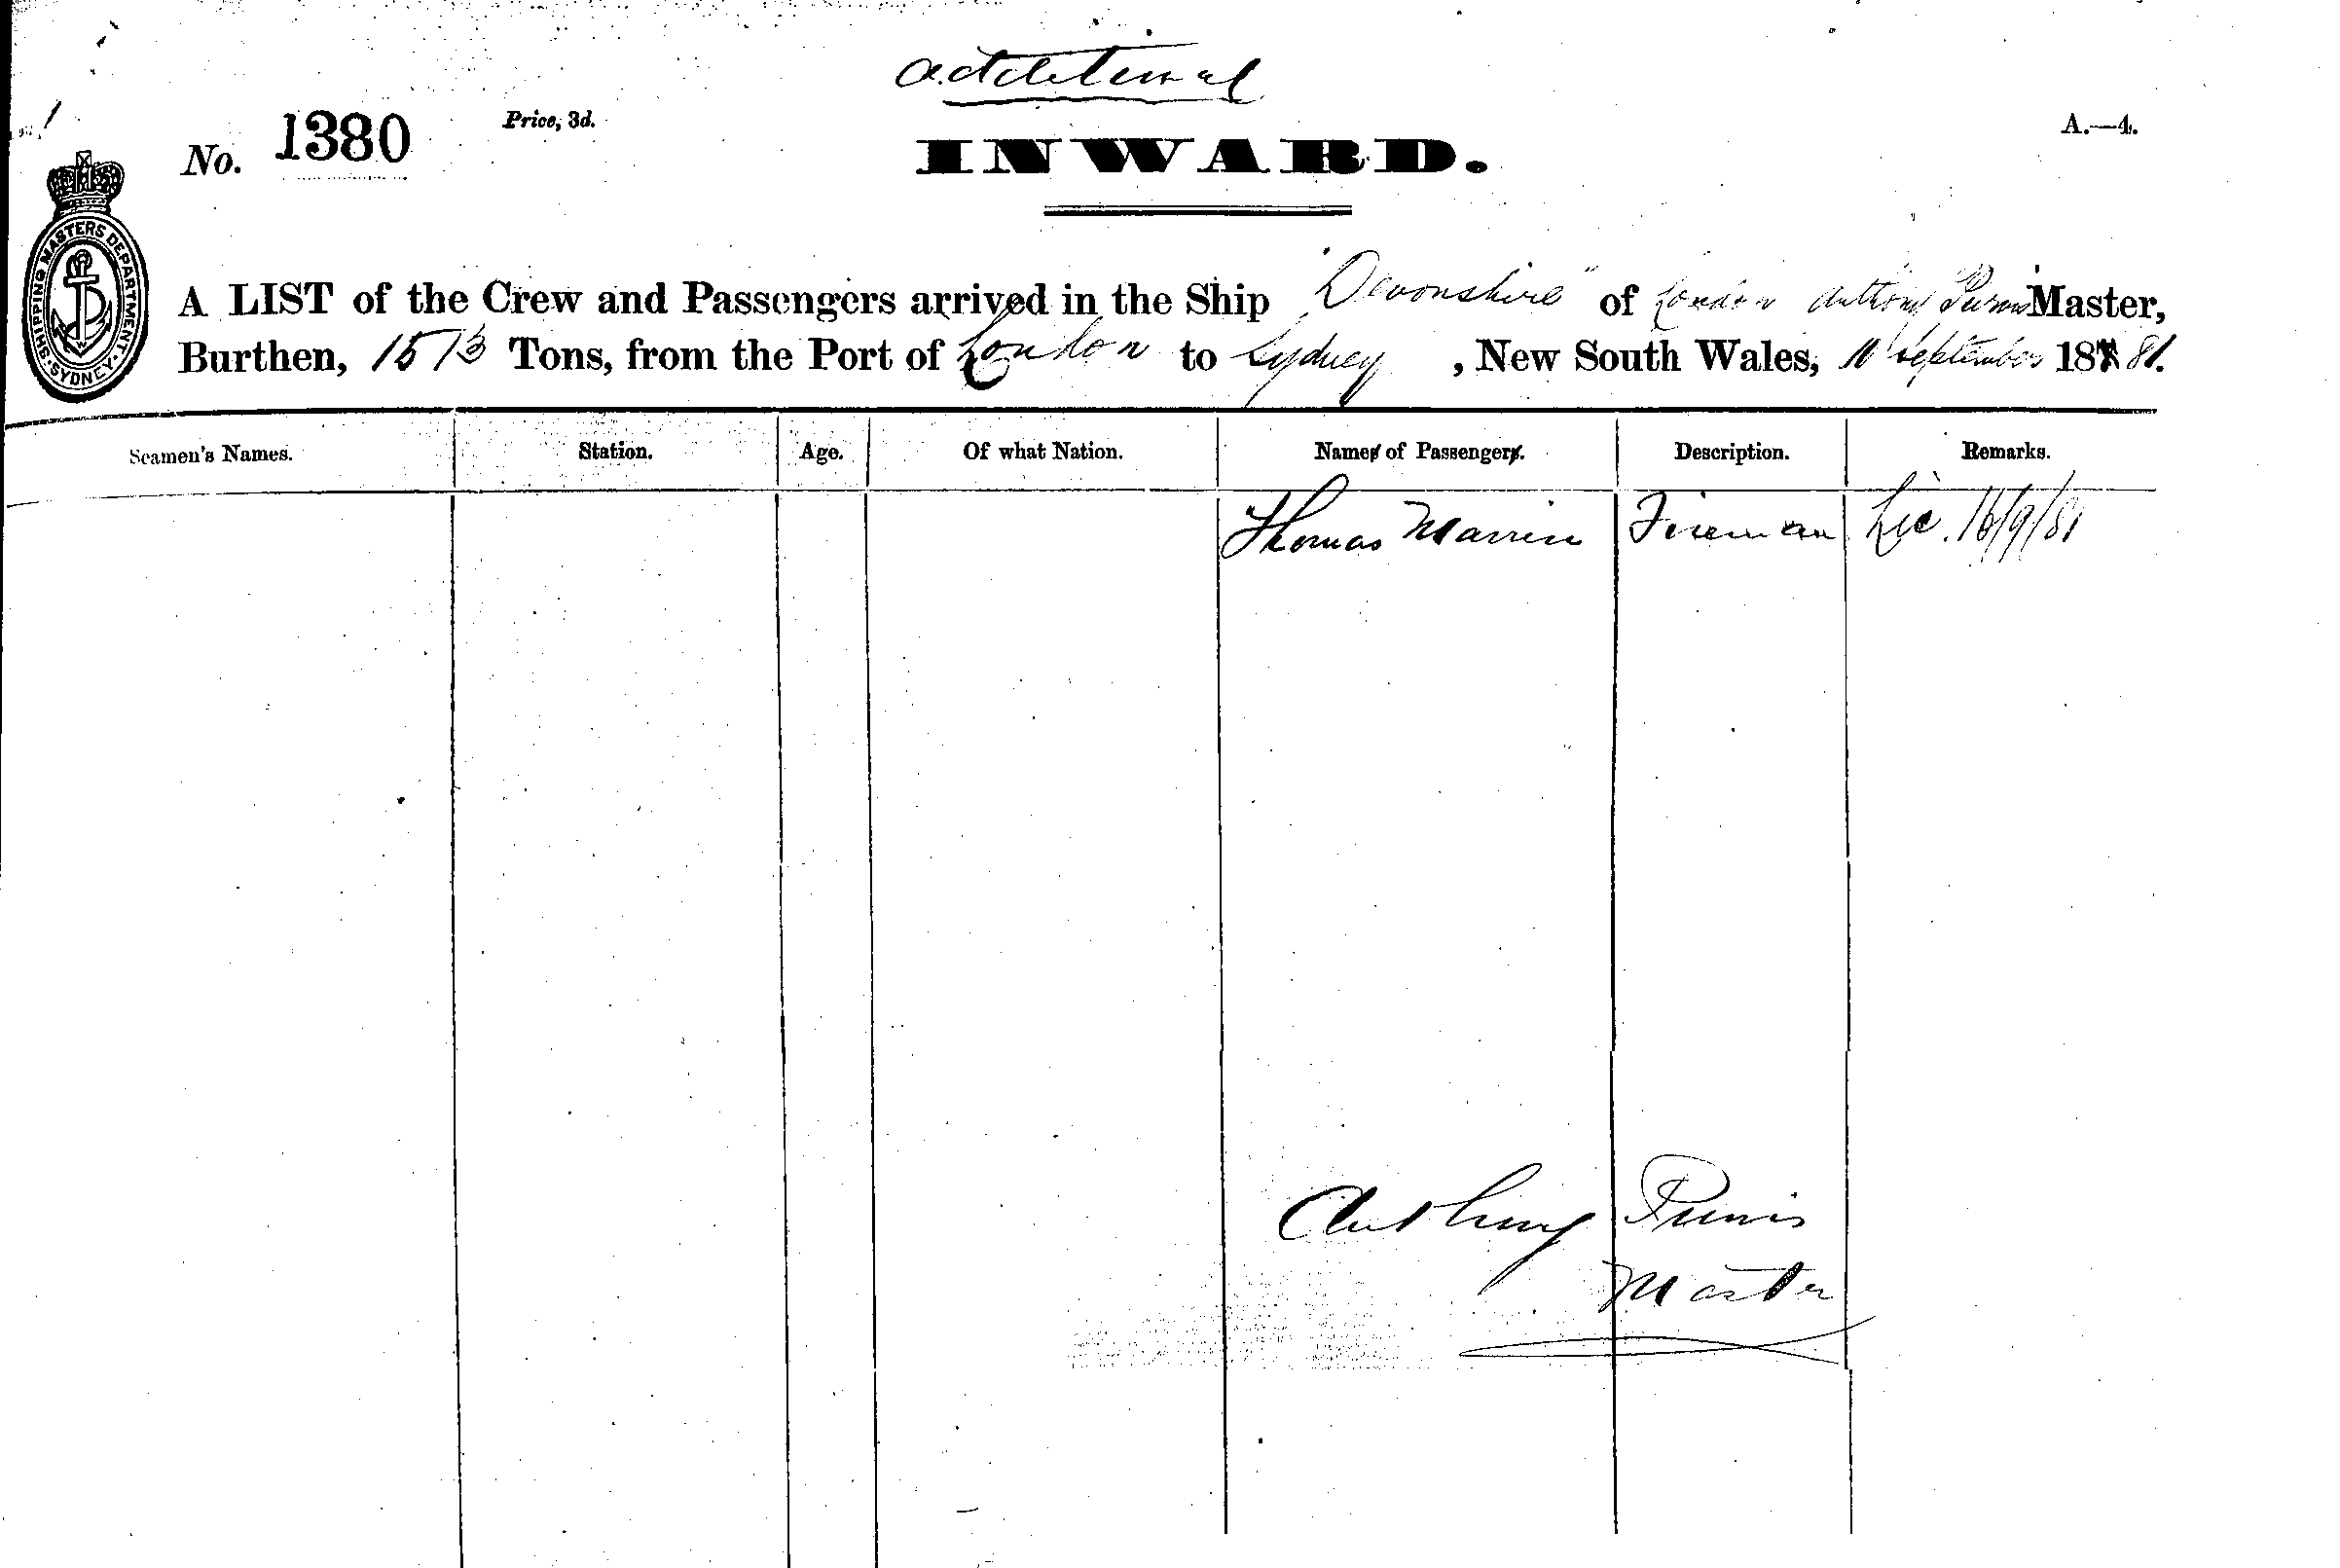 additional
No. 1380 Price, 3d. A.—4.
INWARD.
SHIPPING MASTERS DEPARTMENT. SYDNEY.
A LIST of the Crew and Passengers arrived in the Ship "Devonshire" of London Anthony Master,
Burthen, 1513 Tons, from the Port of London to Sydney, New South Wales, September 187 81.
Seamen's Names. Station. Age. Of what Nation. Names of Passengers. Description. Remarks.
Thomas Marrin Fireman Lic. 16/9/81
Anthony
Master